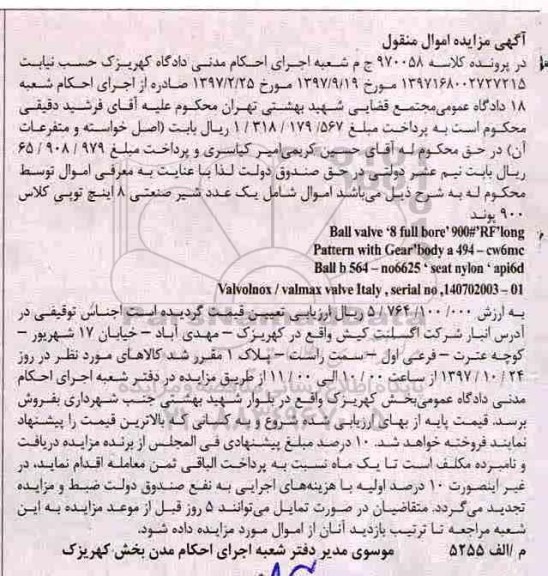 آگهی مزایده اموال منقول
در پرونده کلاسه ۹۷۰۰۵۸ ج م شعبه اجرای احکام مدنی دادگاه کهریزک حسب نیابت
۱۳۹۷۱۶۸۰۰۲۷۲۷۲۱۵ مورخ ۱۳۹۷/۹/۱۹ مورخ ۱۳۹۷/۲/۲۵ صادره از اجرای احکام شعبه
۱۸ دادگاه عمومی‌مجتمع قضایی شهید بهشتی تهران محکوم علیه آقای فرشید دقیقی
محکوم است به پرداخت مبلغ ۵۶۷/ ۱۷۹ / ۳۱۸ / ۱ ریال بابت (اصل خواسته و متفرعات
آن) در حق محکوم له آقای حسین کریمی‌امیر کیاسری و پرداخت مبلغ ۹۷۹ / ۹۰۸ / ۶۵
ریال بابت نیم عشر دولتی در حق صندوق دولت لذا با عنایت به معرفی اموال توسط
محکوم له به شرح ذیل می‌باشند اموال شامل یک عدد شیر صنعتی ۸ اینچ توپی کلاس
۹۰۰ پوند
Ball valve ‘8 full bore’ 900#’RF’long
Pattern with Gear’body a 494 – cw6mc
Ball b 564 – no6625 ‘ seat nylon ‘ api6d
Valvolnox / valmax valve Italy , serial no ,140702003 – 01
به ارزش ۰۰۰/ ۱۰۰/ ۷۶۴/ ۵ ریال ارزیابی تعیین قیمت گردیده است اجناس توقیفی در
آدرس انبار شرکت اگسلنت کیش واقع در کهریزک – مهدی آباد – خیابان ۱۷ شهریور –
کوچه عترت – فرعی اول – سمت راست – پلاک ۱ مقرر شد کالاهای مورد نظر در روز
۲۴ / ۱۰ / ۱۳۹۷ از ساعت ۰۰ / ۱۰ الی ۰۰ / ۱۱ از طریق مزایده در دفتر شعبه اجرای احکام
مدنی دادگاه عمومی‌بخش کهریزک واقع در بلوار شهید بهشتی جنب شهرداری بفروش
برسد. قیمت پایه از بهای ارزیابی شده شروع و به کسانی که بالاترین قیمت را پیشنهاد
نمایند فروخته خواهد شد. ۱۰ درصد مبلغ پیشنهادی فی المجلس از برنده مزایده دریافت
و نامبرده مکلف است تا یک ماه نسبت به پرداخت الباقی ثمن معامله اقدام نماید، در
غیر اینصورت ۱۰ درصد اولیه با هزینه‌های اجرایی به نفع صندوق دولت ضبط و مزایده
تجدید می‌گردد. متقاضیان در صورت تمایل می‌توانند ۵ روز قبل از موعد مزایده به این
شعبه مراجعه تا ترتیب بازدید آنان از اموال مورد مزایده داده شود.
م /الف ۵۲۵۵ موسوی مدیر دفتر شعبه اجرای احکام مدن بخش کهریزک